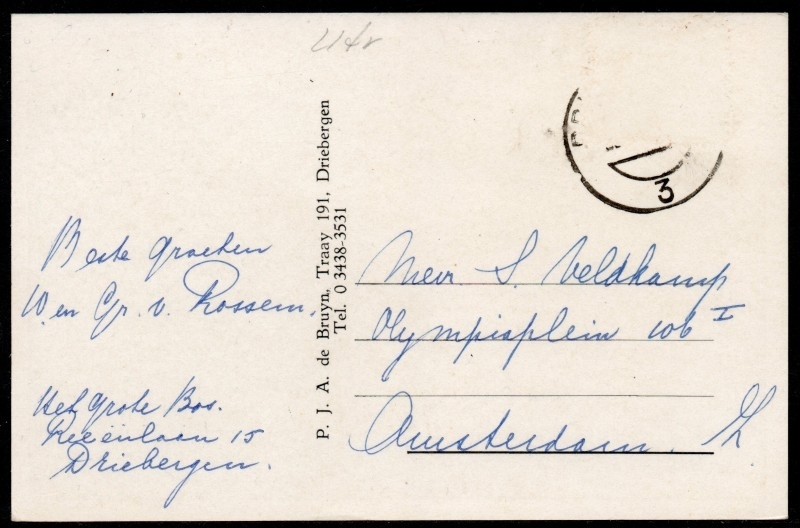 Utr
Beste groeten
W. en Gr. v. Rossem.
Het grote Bos.
Reeënlaan 15
Driebergen.
P. J. A. de Bruyn, Traay 191, Driebergen
Tel. 0 3438-3531
3
Mevr S. Veldkamp
Olympiaplein 106 I
Amsterdam. Z